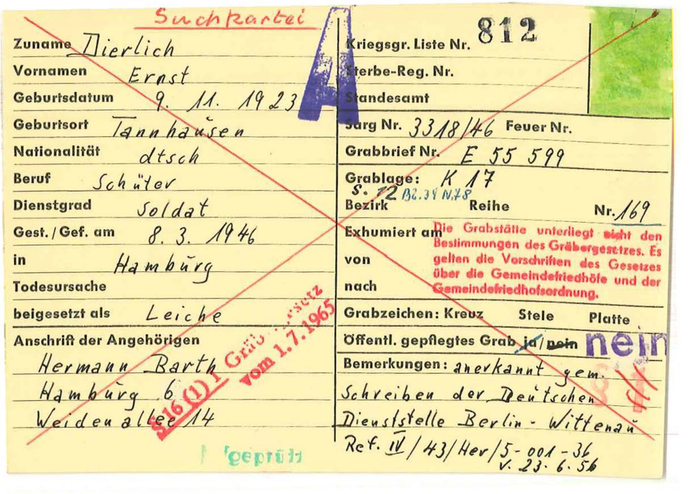 Suchkartei
A
Zuname Dierlich
Vornamen Ernst
Geburtsdatum 9. 11. 1923
Geburtsort Tannhausen
Nationalität dtsch
Beruf Schüler
Dienstgrad Soldat
Gest./Gef. am 8. 3. 1946
in Hamburg
Todesursache
beigesetzt als Leiche
Anschrift der Angehörigen
Hermann Barth
Hamburg 6
Weidenallee 14
§ 16 (1) 1 Gräbergesetz
vom 1.7.1965
geprüft
Kriegsgr. Liste Nr. 812
Sterbe-Reg. Nr.
Standesamt
Sarg Nr. 3318/46 Feuer Nr.
Grabbrief Nr. E 55 599
Grablage: K 17
Bezirk Reihe Nr. 169
Exhumiert am
von
nach
Die Grabstätte unterliegt nicht den
Bestimmungen des Gräbergesetzes. Es
gelten die Vorschriften des Gesetzes
über die Gemeindefriedhöfe und der
Gemeindefriedhofsordnung.
Grabzeichen: Kreuz Stele Platte
Öffentl. gepflegtes Grab ja/nein nein
Bemerkungen: anerkannt gem.
Schreiben der Deutschen
Dienststelle Berlin-Wittenau
Ref. IV/43/Her/5-001-36
v. 23.6.56